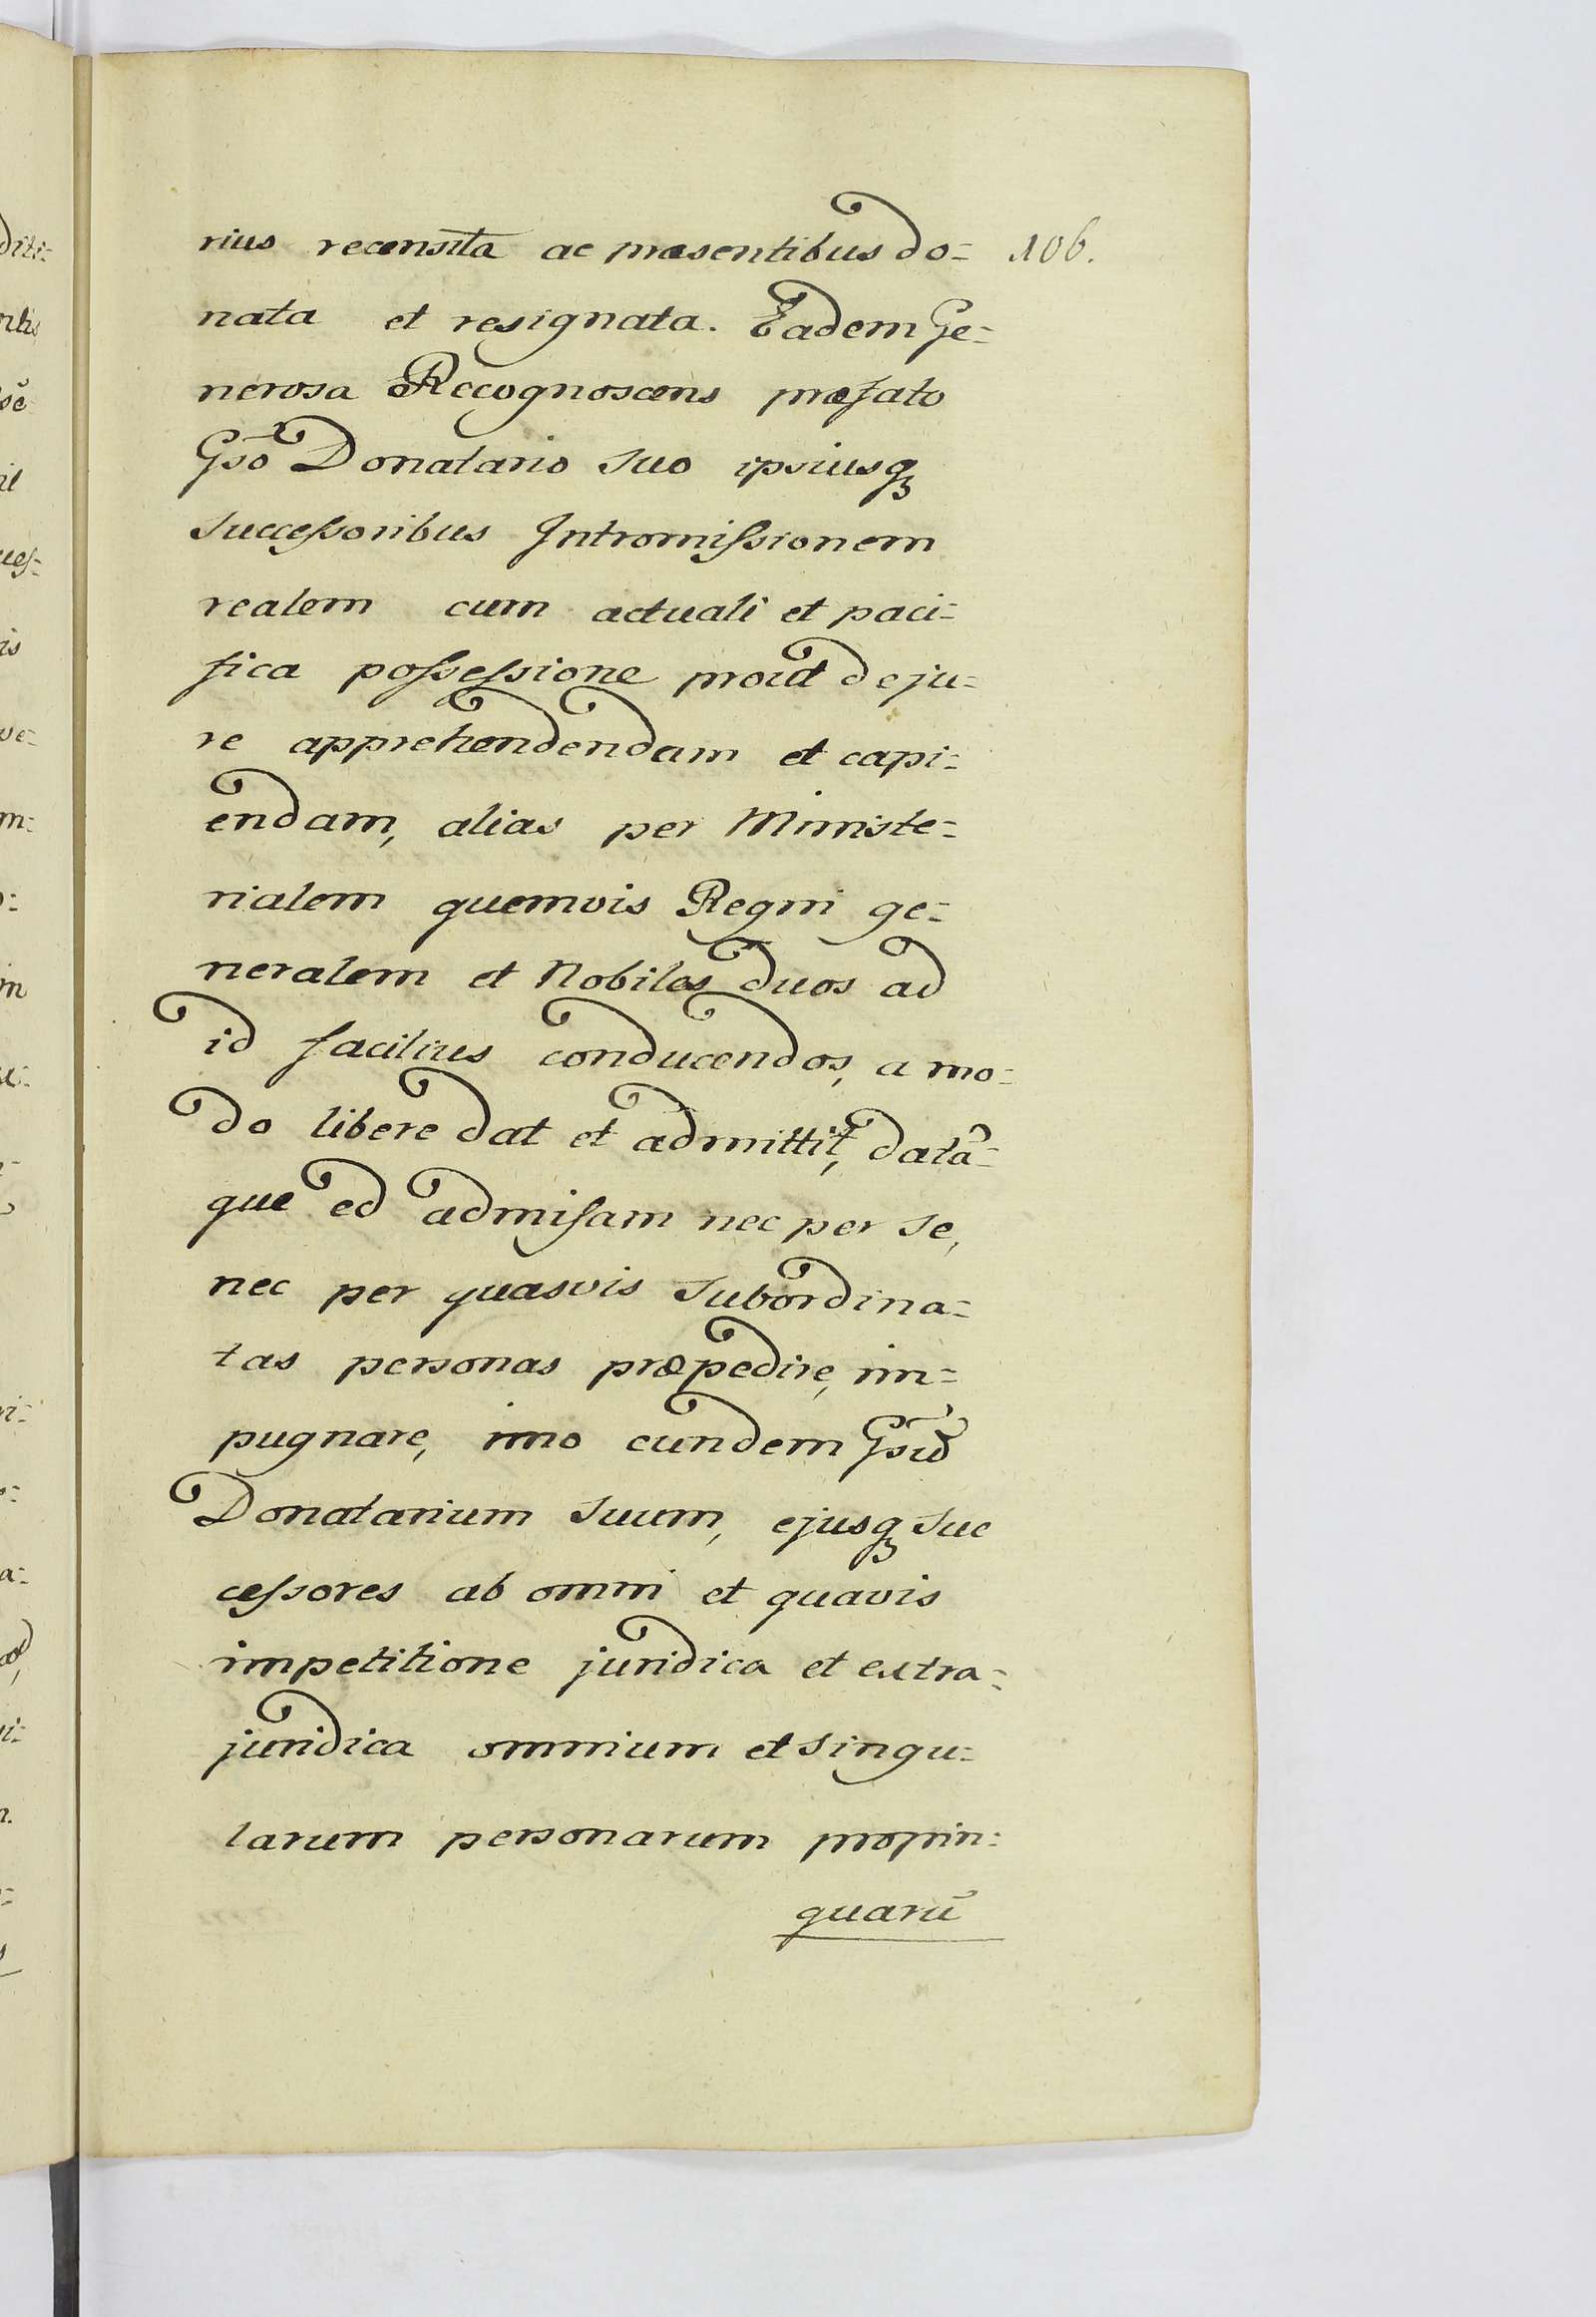 rius recensita ac præsentibus do= 106.
nata et resignata. Eadem Ge=
nerosa Recognoscens præfato
Gsõ Donatario suo ipsiusqꝫ
successoribus Intromissionem
realem cum actuali et paci=
fica possessione prout de ju=
re apprehendendam et capi=
endam, alias per Ministe=
rialem quemvis Regni ge=
neralem et Nobiles duos ad
id facilius conducendos, a mo=
do libere dat et admittit, datã=
que ed admisam nec per se,
nec per quasvis subordina=
tas personas præpedire, im=
pugnare, imo eundem Gsũ
Donatarium suum, ejusqꝫ suc
cessores ab omni et quavis
impetitione juridica et extra=
juridica omnium et singu=
larum personarum propin=
quarũ